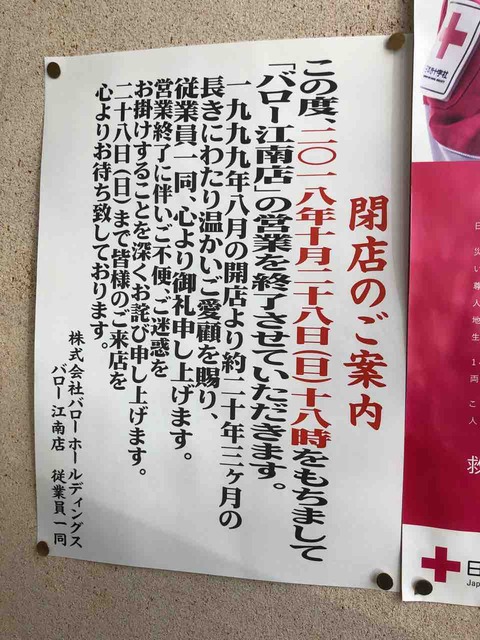 閉店のご案内
この度、二〇一八年十月二十八日(日)十八時をもちまして
「バロー江南店」の営業を終了させていただきます。
一九九九年八月の開店より約二十年三ヶ月の
長きにわたり温かいご愛顧を賜り、
従業員一同、心より御礼申し上げます。
営業終了に伴いご不便、ご迷惑を
お掛けすることを深くお詫び申し上げます。
二十八日(日)まで皆様のご来店を
心よりお待ち致しております。
株式会社バローホールディングス
バロー江南店 従業員一同
十字社
日
災
い
尊
人
地
生
14
両
こ
人
救
日
Japa